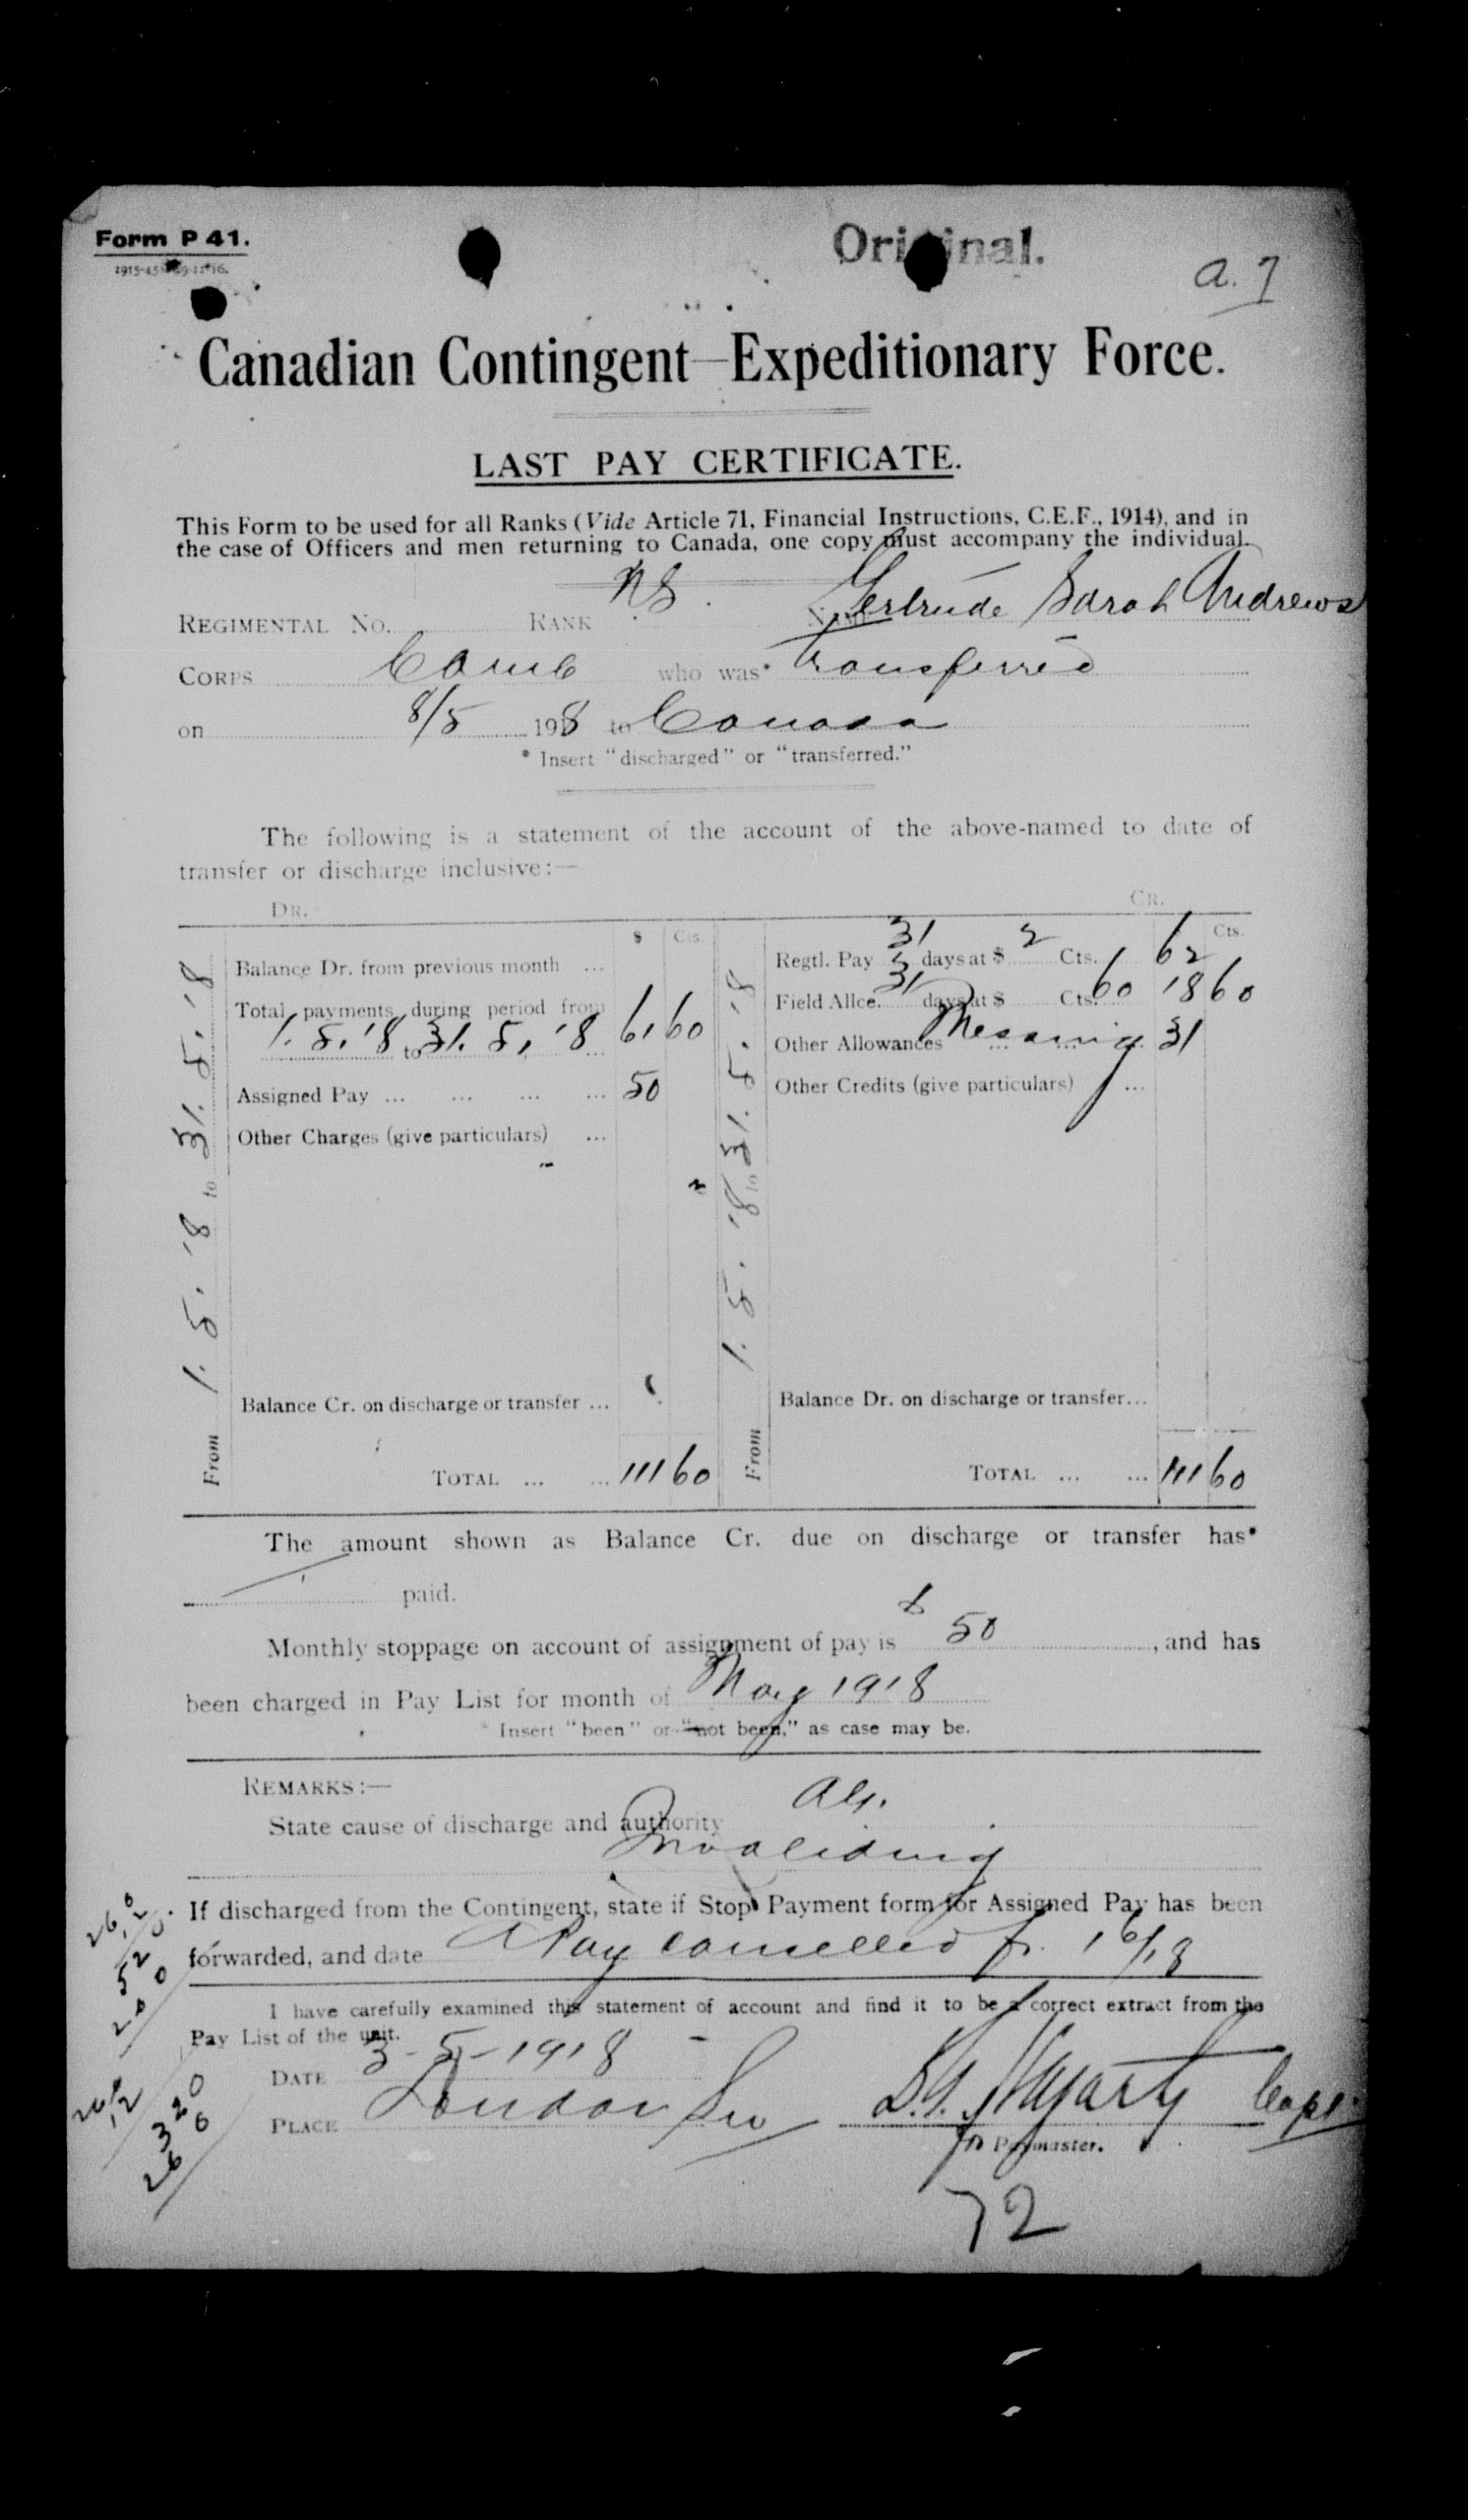 Form P 41.
Original.
a. 7
Canadian Contingent—Expeditionary Force.
LAST PAY CERTIFICATE.
This Form to be used for all Ranks (Vide Article 71, Financial Instructions, C.E.F., 1914), and in
the case of Officers and men returning to Canada, one copy must accompany the individual.
REGIMENTAL NO. RANK NS. Gertrude Sarah Andrews
CORPS CAMC who was* transferred
on 8/5 1918 to Canada
* Insert "discharged" or "transferred."
The following is a statement of the account of the above-named to date of
transfer or discharge inclusive:—
DR. CR.
$ Cts. Cts.
Balance Dr. from previous month ...
Total payments during period from
1. 5. '18 to 31. 5. '18 ... 61 60
Assigned Pay ... ... ... ... 50
Other Charges (give particulars) ...
Balance Cr. on discharge or transfer ...
TOTAL ... ... 111 60
From 1. 5. '18 to 31. 5. '18
Regtl. Pay 31 days at $ 2 Cts. 62
Field Allce. 31 days at $ Cts. 60 18 60
Other Allowances Messing 31
Other Credits (give particulars) ...
Balance Dr. on discharge or transfer...
TOTAL ... ... 111 60
From 1. 5. '18 to 31. 5. '18
The amount shown as Balance Cr. due on discharge or transfer has*
paid.
Monthly stoppage on account of assignment of pay is $ 50, and has
been charged in Pay List for month of May 1918
* Insert "been" or "not been," as case may be.
REMARKS:—
State cause of discharge and authority
Invaliding
If discharged from the Contingent, state if Stop Payment form for Assigned Pay has been
forwarded, and date A Pay cancelled fr. 1/6/18
I have carefully examined this statement of account and find it to be a correct extract from the
Pay List of the unit.
DATE 3-5-1918
PLACE London SW Hagarty Capt
for Paymaster.
72